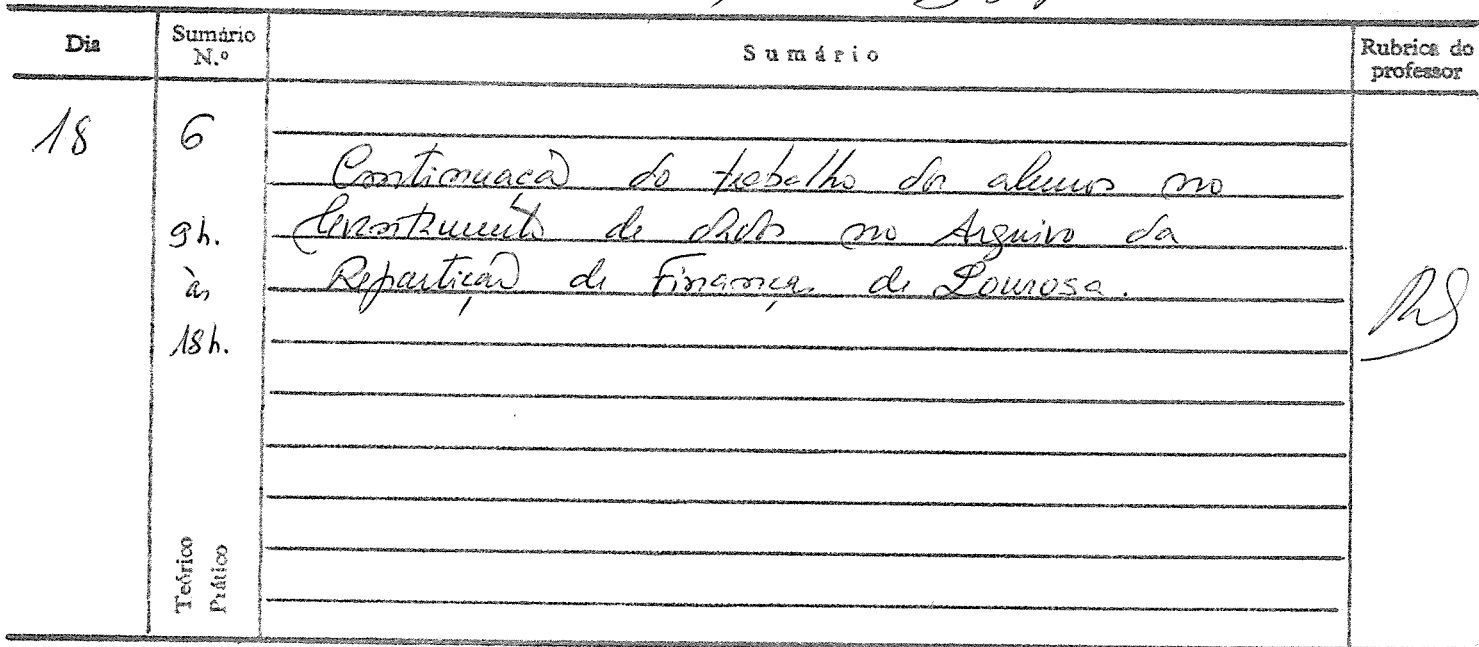 Dia
Sumário N.º
Sumário
Rubrica do professor
18
6
9h.
às
18h.
Continuação do trabalho dos alunos no
levantamento de dados no Arquivo da
Repartição de Finanças de Lourosa.
Teórico
Prático